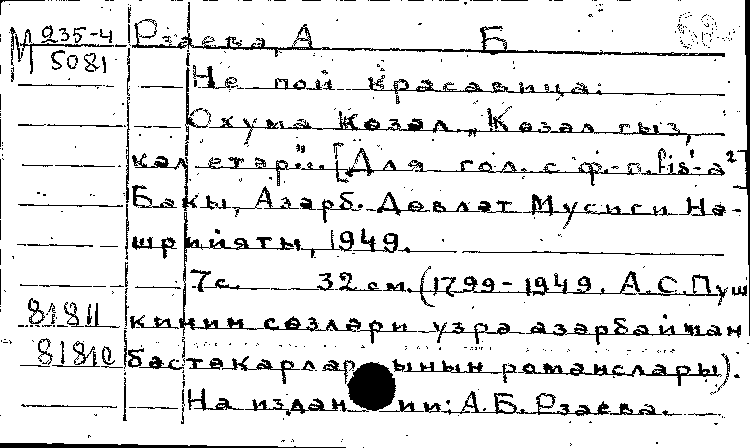 М 235-4
5081
Рзаева, А Б
Не пой красавица:
Охума көзәл. „Көзәл гыз,
кәл етәр". [Для гол. с ф.-п. fis¹-a²]
Бакы, Азәрб. Дөвләт Мусиги Нә-
шрийяты, 1949.
7с. 32 см. (1799-1949. А.С.Пуш
81811 кинин сөзләри узрә азәрбайҹан
81810 бәстәкарларынын романслары).
На издании: А.Б. Рзаева.